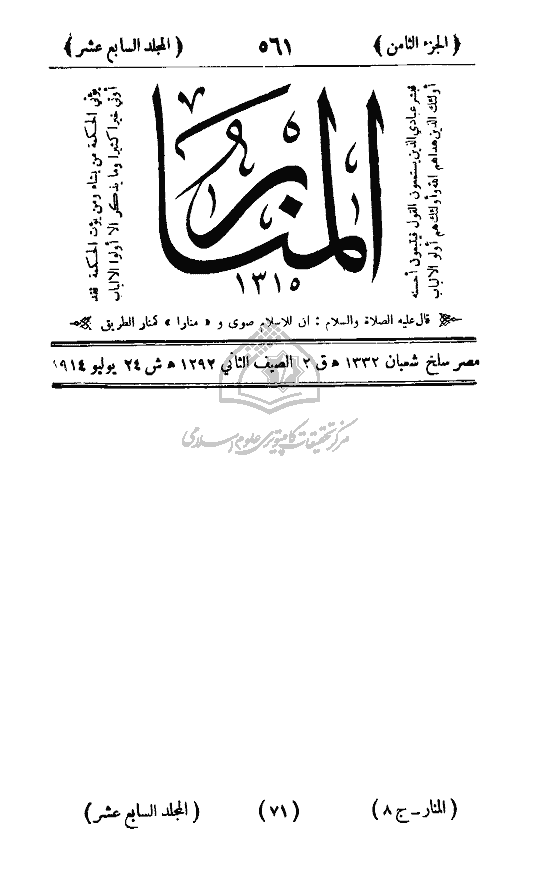 ﴿ الجزء الثامن ﴾ ٥٦١ ﴿ المجلد السابع عشر ﴾
فبشر عبادي الذين يستمعون القول فيتبعون أحسنه
أولئك الذين هداهم الله وأولئك هم أولو الالباب
المنار
١٣١٥
يؤتي الحكمة من يشاء ومن يؤت الحكمة فقد
أوتي خيرا كثيرا وما يذكر الا أولوا الالباب
قال عليه الصلاة والسلام : ان للاسلام صوى و « منارا » كمنار الطريق
مصر سلخ شعبان ١٣٣٢ ه ق ٢ الصيف الثاني ١٢٩٢ ه ش ٢٤ يوليو ١٩١٤
مركز تحقيقات كامپيوتري علوم اسلامي
( المنار - ج ٨ ) ( ٧١ ) ( المجلد السابع عشر )